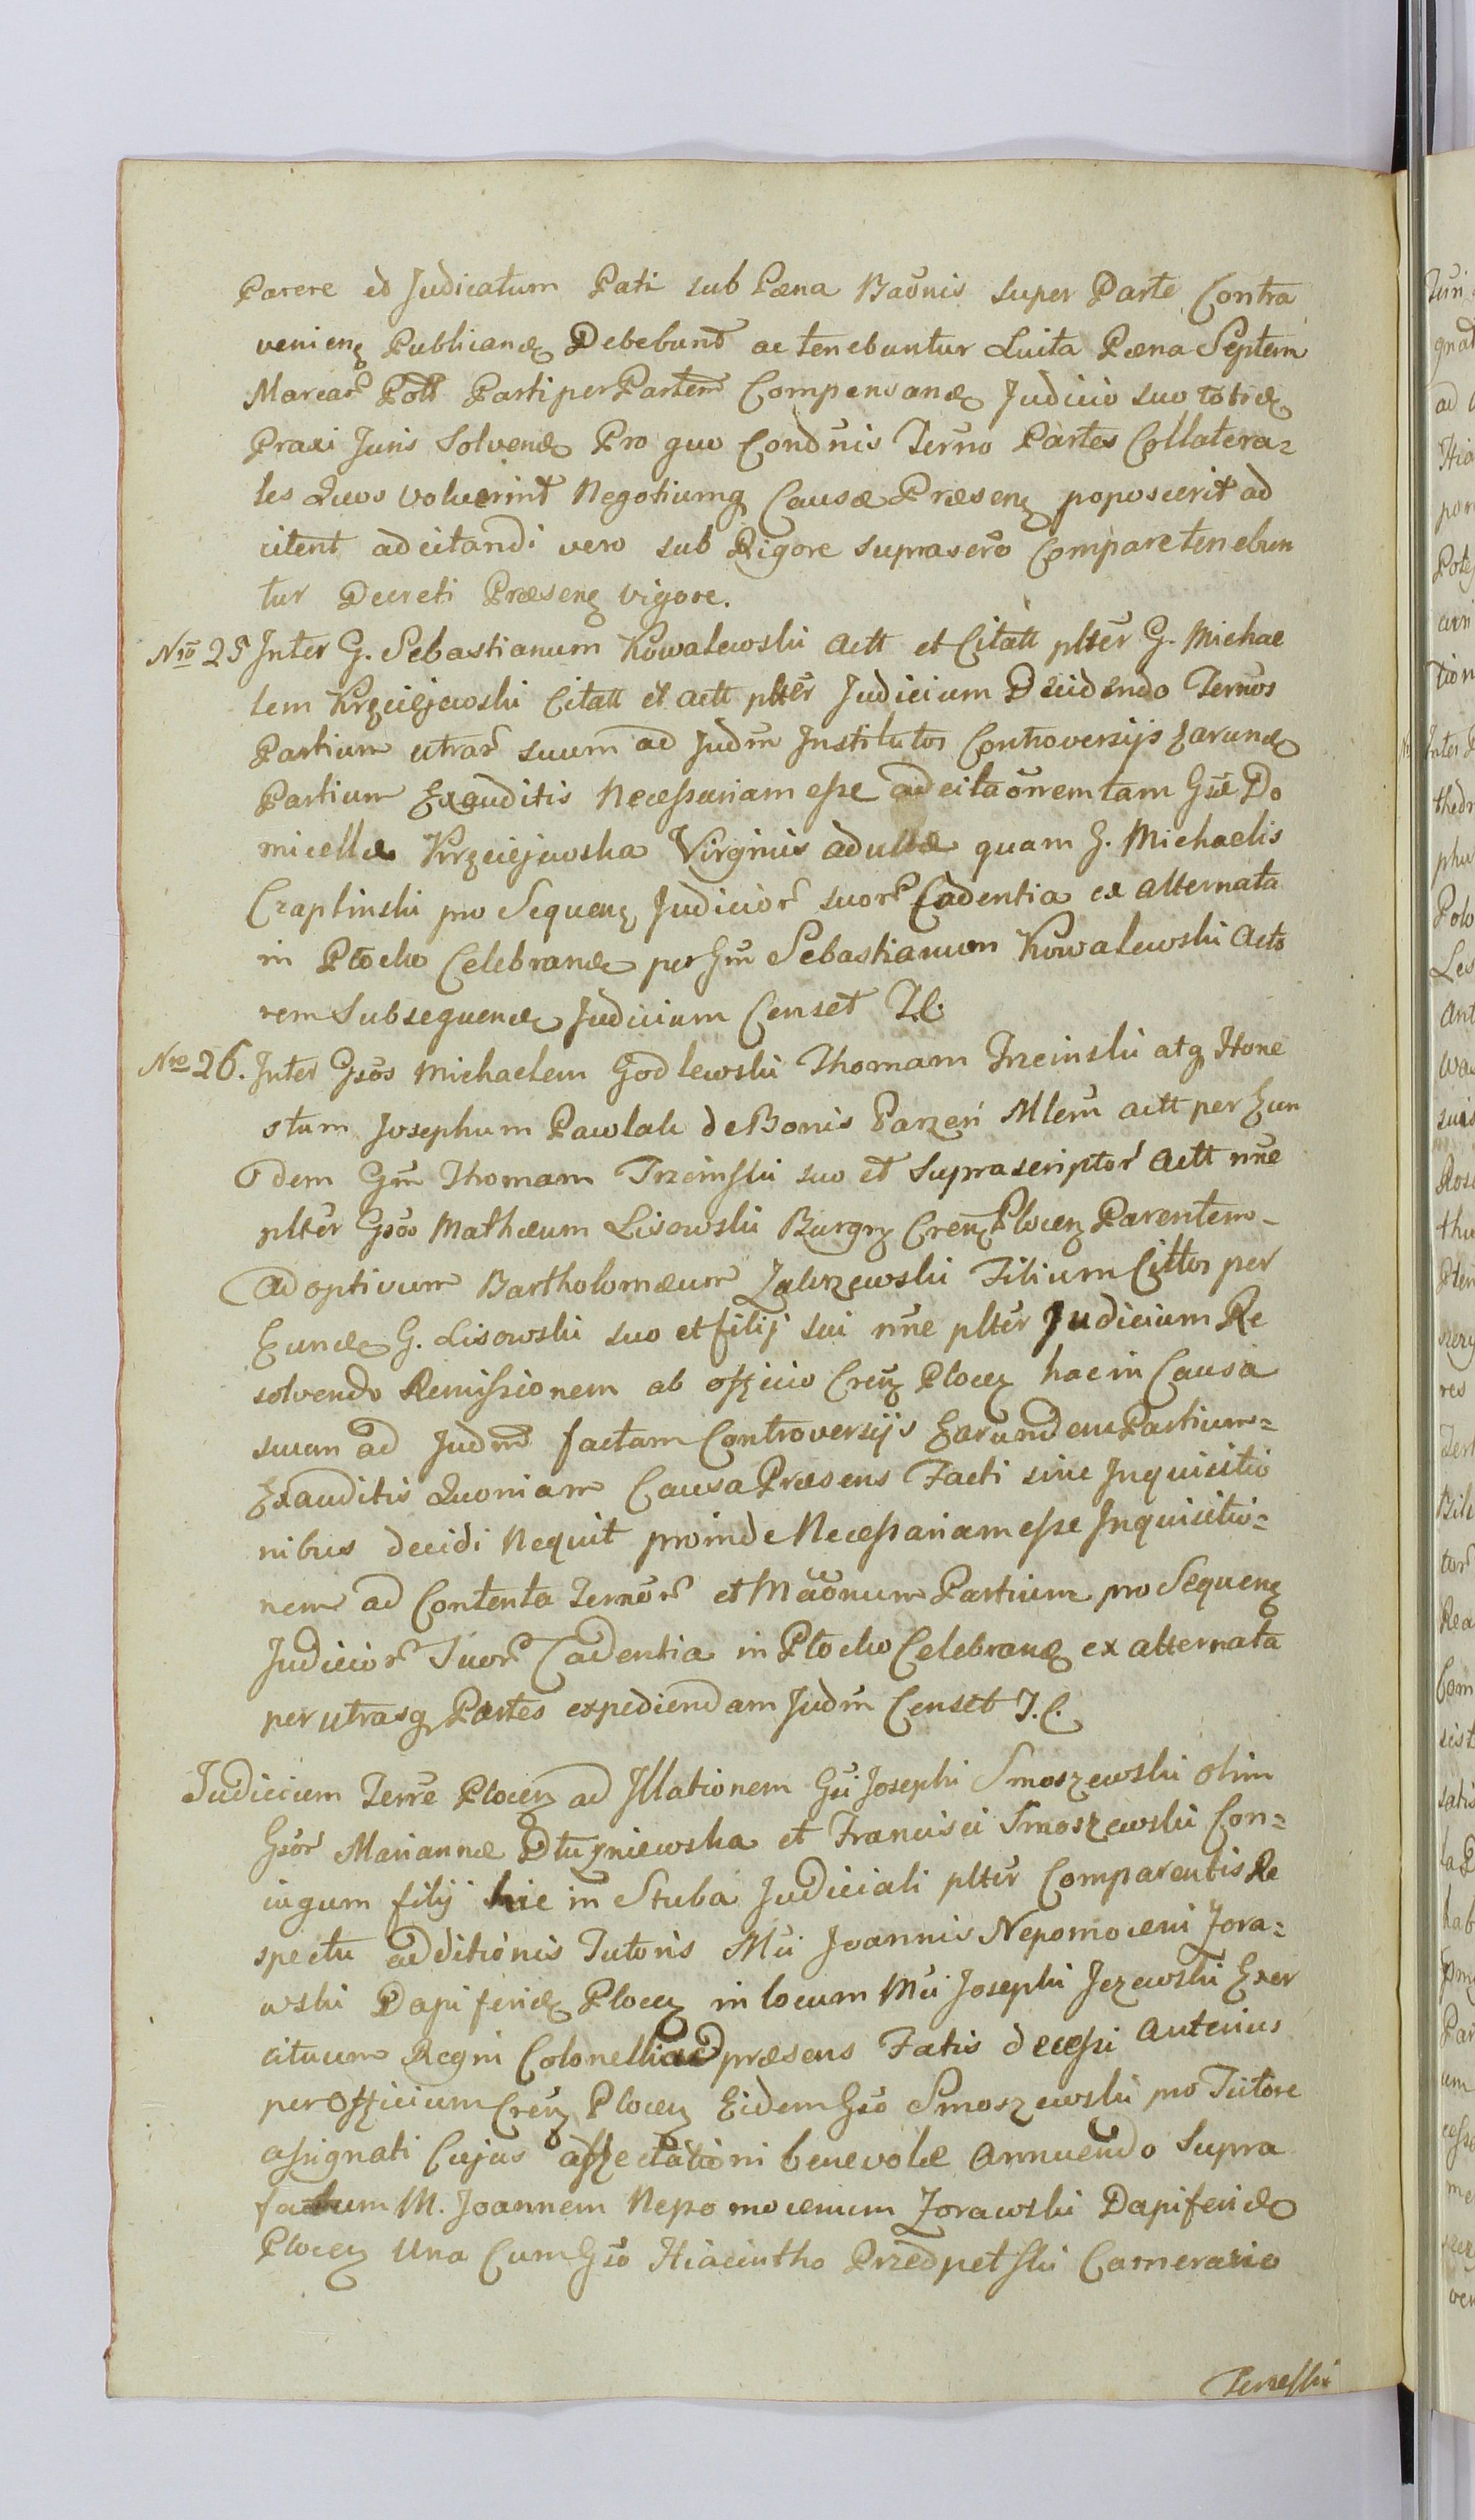 Parere ed Judicatum Pati sub Pæna Baõnis super Parte Contra
venienz Publicandꝫ Debebunt ac tenebuntur Luita Pæna Septem
Marcar Poll Parti per Partem Compensandꝫ Judicio suo totidꝫ
Praxi Juris Solvendꝫ Pro quo Condnis Termo Partes Collatera=
les Quos voluerint Negotiumq Causæ Præsenz poposcerit ad
citent adcitandi vero sub Rigore suprascro Compare tenebun
tur Decreti Præsenz vigore.
Nro 25 Inter G. Sebastianum Kowalewski Actt et Citatt plter G. Michae
lem Krzciejewski Citatt et actt plter Judicium Decidendo Termos
Partium utrar suum ad Judm Institutos Controversijs Earundꝫ
Partium Exauditis Necessariam esse adcitaõnem tam Gsæ Do
micellæ Krzciejewska Virginis adultæ quam G. Michaelis
Czaplinski pro Sequenz Judicior suor Cadentia ex alternata
in Płocko Celebrandꝫ per Gm Sebastianum Kowalewski Acto
rem Subsequendꝫ Judicium Censet J.C.
Nro 26. Inter Gsos Michaelem Godlewski Thomam Trzcinski atq Hone
stum Josephum Pawlak de Bonis Parzeń Mlem actt per Eun
dem Gm Thomam Trzcinski suo et Suprascriptor Actt nne
plter Gsos Mathæum Lisowski Burgrz Crenz Plocenz Parentem
Adoptivum Bartholomæum Zakrzewski Filium Cittos per
Eundꝫ G. Lisowski suo et filij sui nne plter Judicium Re
solvendo Remissionem ab officio Crenz Plocenz hac in Causa
suum ad Judm factam Controversijs Earundem Partium=
Exauditis Quoniam Causa Præsens Facti sine Inquisitio
nibus decidi Nequit proinde Necessariam esse Inquisitio=
nem ad Contenta Termor et Maõnum Partium pro Sequenz
Judicior Suor Cadentia in Płocko Celebrandꝫ ex alternata
per utrasq Partes expediendam Judm Censet J.C.
Judicium Terre Plocenz ad Illationem Gsi Josephi Smoszewski olim
Gsor Mariannæ Dłuzniewska et Francisci Smoszewski Con=
iugum filij hic in Stuba Judiciali plter Comparentis Re
spectu additionis Tutoris Mci Joannis Nepomoceni Zora=
wski Dapiferidꝫ Plocenz in locum Mci Josephi Jezewski Exer
cituum Regni Colonelli ad præsens Fatis decessi Anterius
per Officium Crenz Plocenz Eidem Gso Smoszewski pro Tutore
assignati Cujus affectationi benevole Annuendo Supra
fatum M. Joannem Nepomocenum Zorawski Dapiferidꝫ
Plocenz Una Cum Gso Hiacintho Przedpełski Camerario